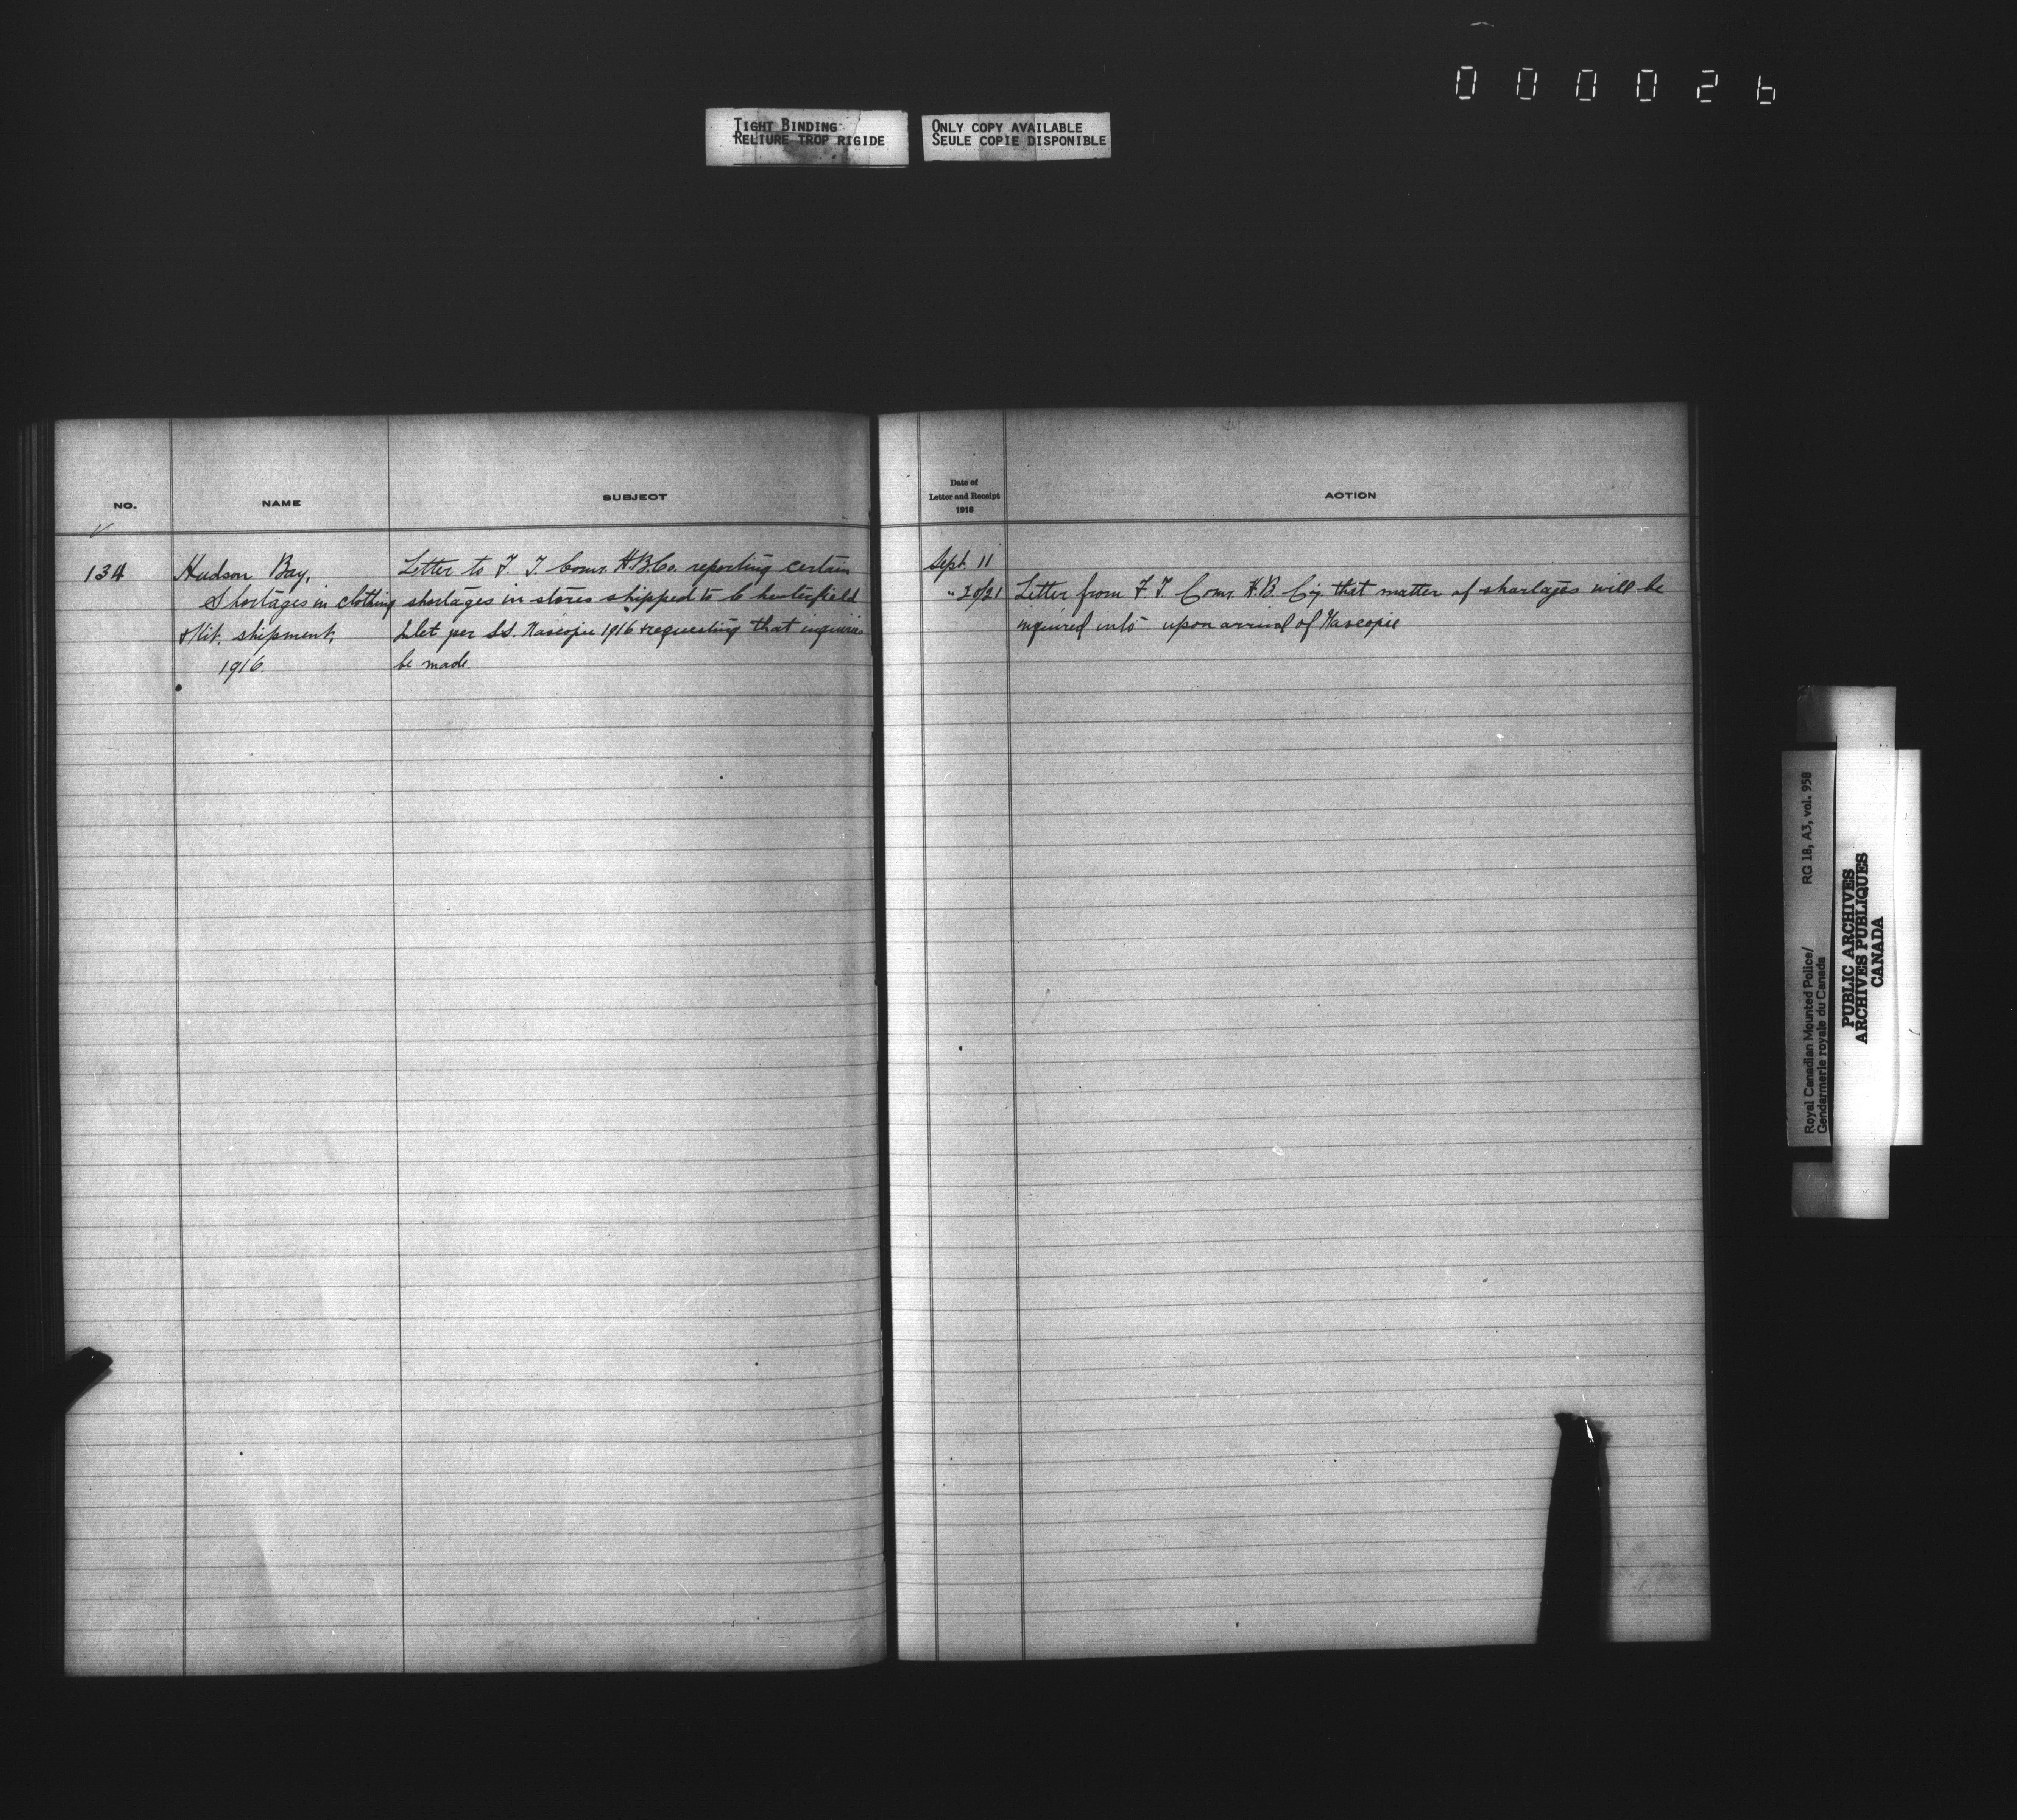 000026
TIGHT BINDING
RELIURE TROP RIGIDE
ONLY COPY AVAILABLE
SEULE COPIE DISPONIBLE
NO.
NAME
SUBJECT
134
Hudson Bay,
Shortages in clothing
& Kit, shipment,
1916.
Letter to F. T. Comr. H.B.Co. reporting certain
shortages in stores shipped to Chesterfield
Inlet per S.S. Nascopie 1916 & requesting that inquiries
be made.
Date of
Letter and Receipt
1918
ACTION
Sept. 11
" 20/21
Letter from F. T. Comr. H.B. Coy. that matter of shortages will be
inquired into upon arrival of Nascopie
Royal Canadian Mounted Police/
Gendarmerie royale du Canada
RG 18, A3, vol. 958
PUBLIC ARCHIVES
ARCHIVES PUBLIQUES
CANADA